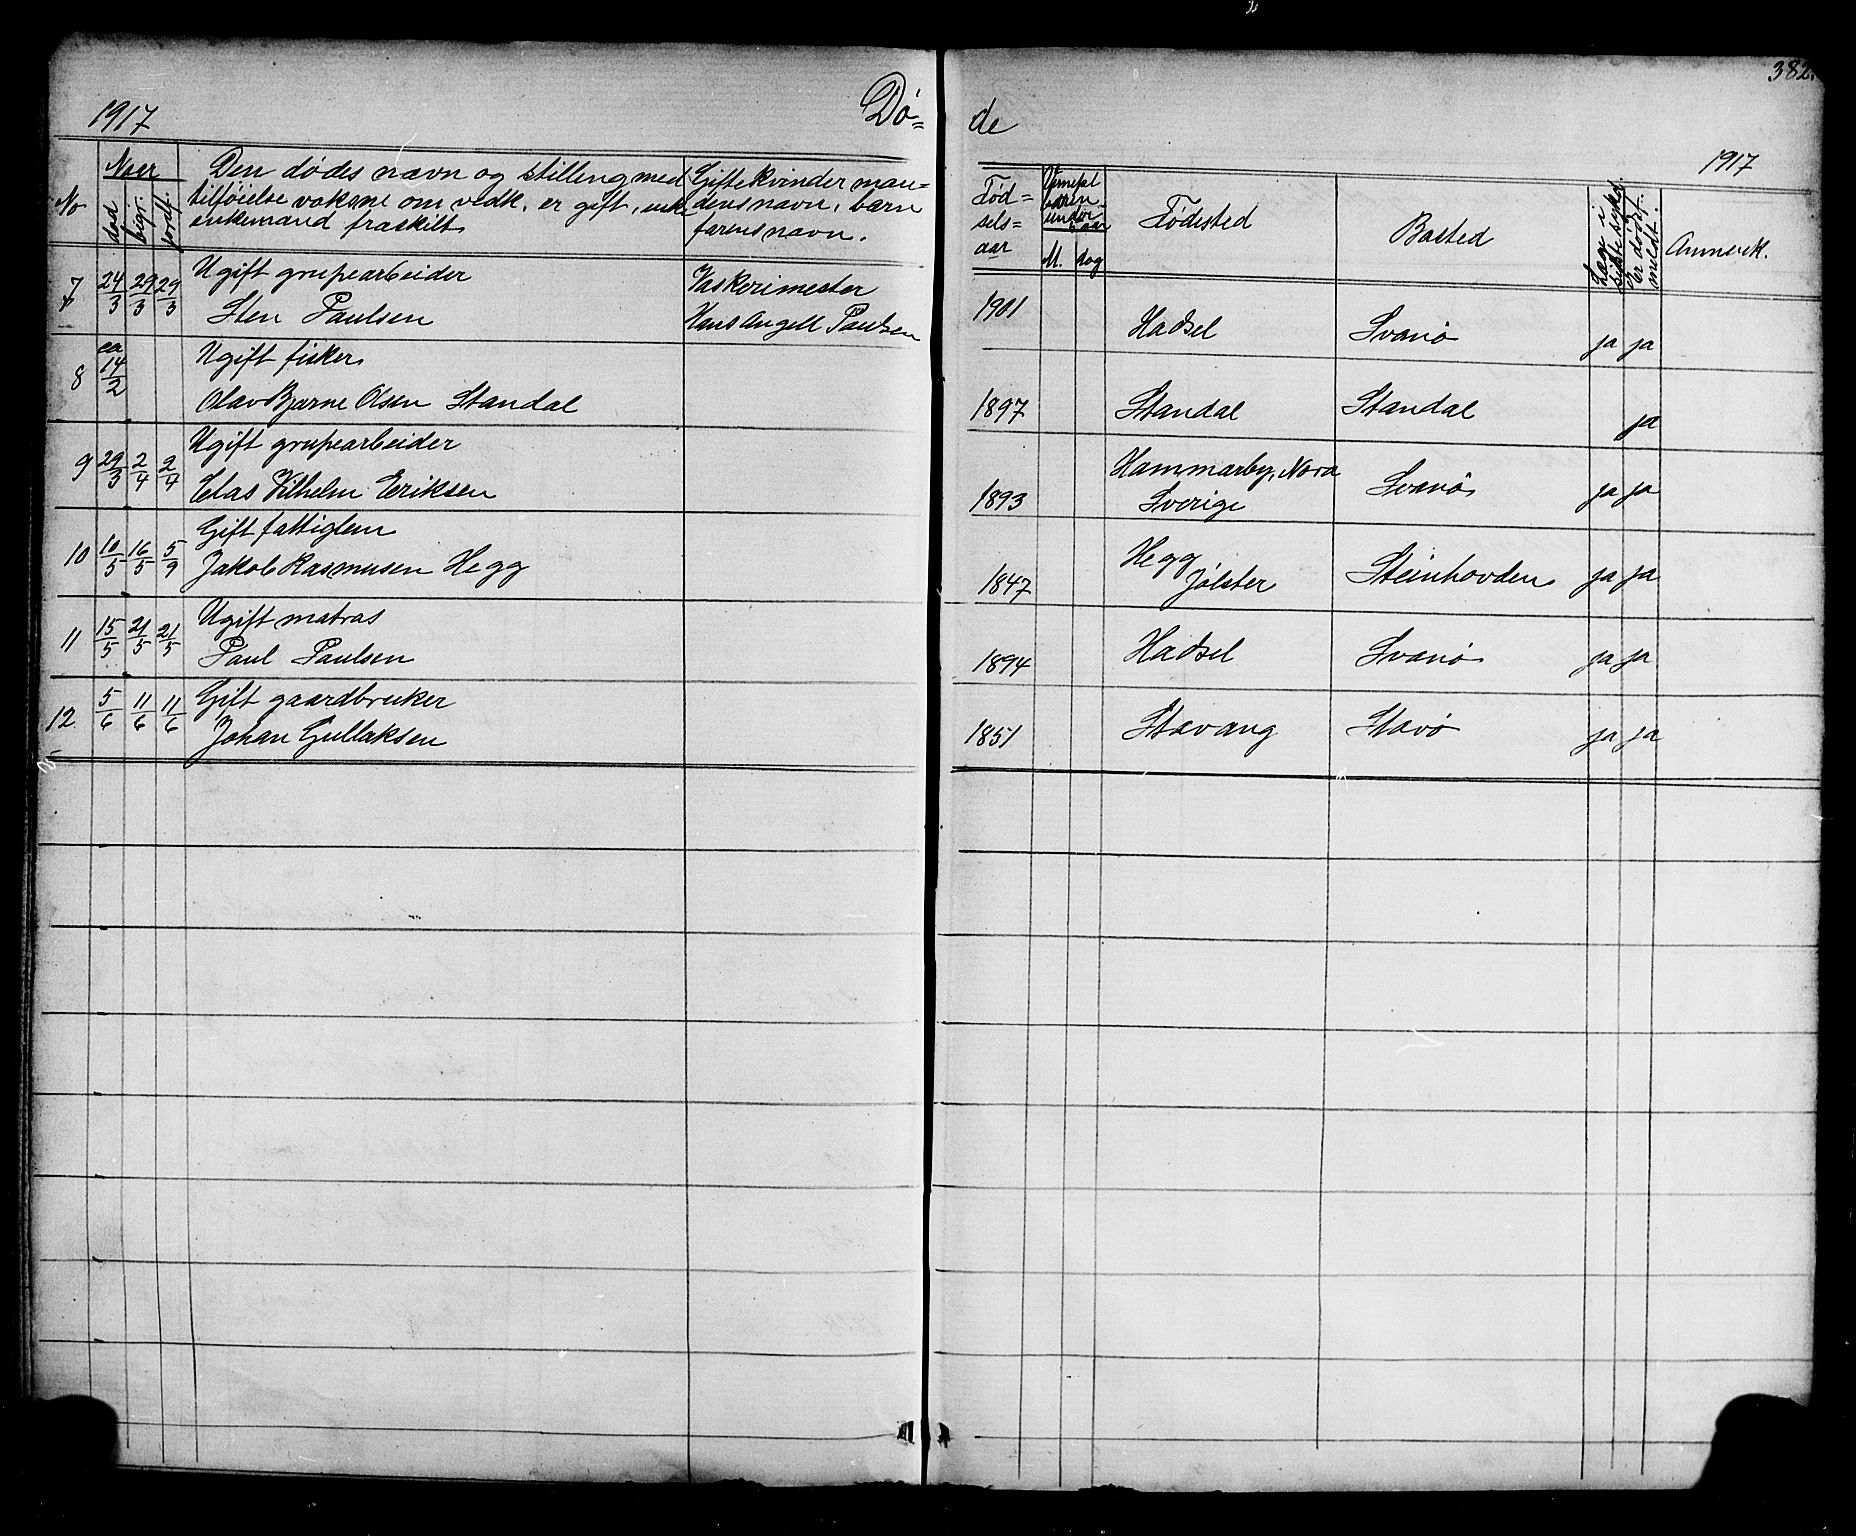 382.
1917
Dø=
de
1917
No
Naar
død
begr.
jordf.
Den dødes navn og stilling med
tilføielse voksne om vedk. er gift, enke
enkemand fraskilt
Gifte kvinder man=
dens navn, børn
farens navn.
Fød=
sels=
aar
under
M.
dag
Fødested
Bosted
Læge i
Er dødsf.
meldt.
Anmerk.
7 24/3 29/3 29/3 Ugift grupearbeider Vaskerimester
Sten Paulsen Hans Angell Paulsen
1901 Hadsel Svanø ja ja
8 ca 14/2 Ugift fisker
Olav Bjarne Olsen Standal
1897 Standal Standal ja
9 29/3 2/4 2/4 Ugift grupearbeider
Clas Vilhelm Eriksen
1893 Hammarby, Nora
Sverige Svanø ja ja
10 10/5 16/5 5/9 Gift fattiglem
Jakob Rasmusen Hegg
1847 Hegg
Jølster Steinhovden ja ja
11 15/5 21/5 21/5 Ugift matros
Paul Paulsen
1894 Hadsel Svanø ja ja
12 5/6 11/6 11/6 Gift gaardbruker
Johan Gullaksen
1851 Stavang Stavø ja ja